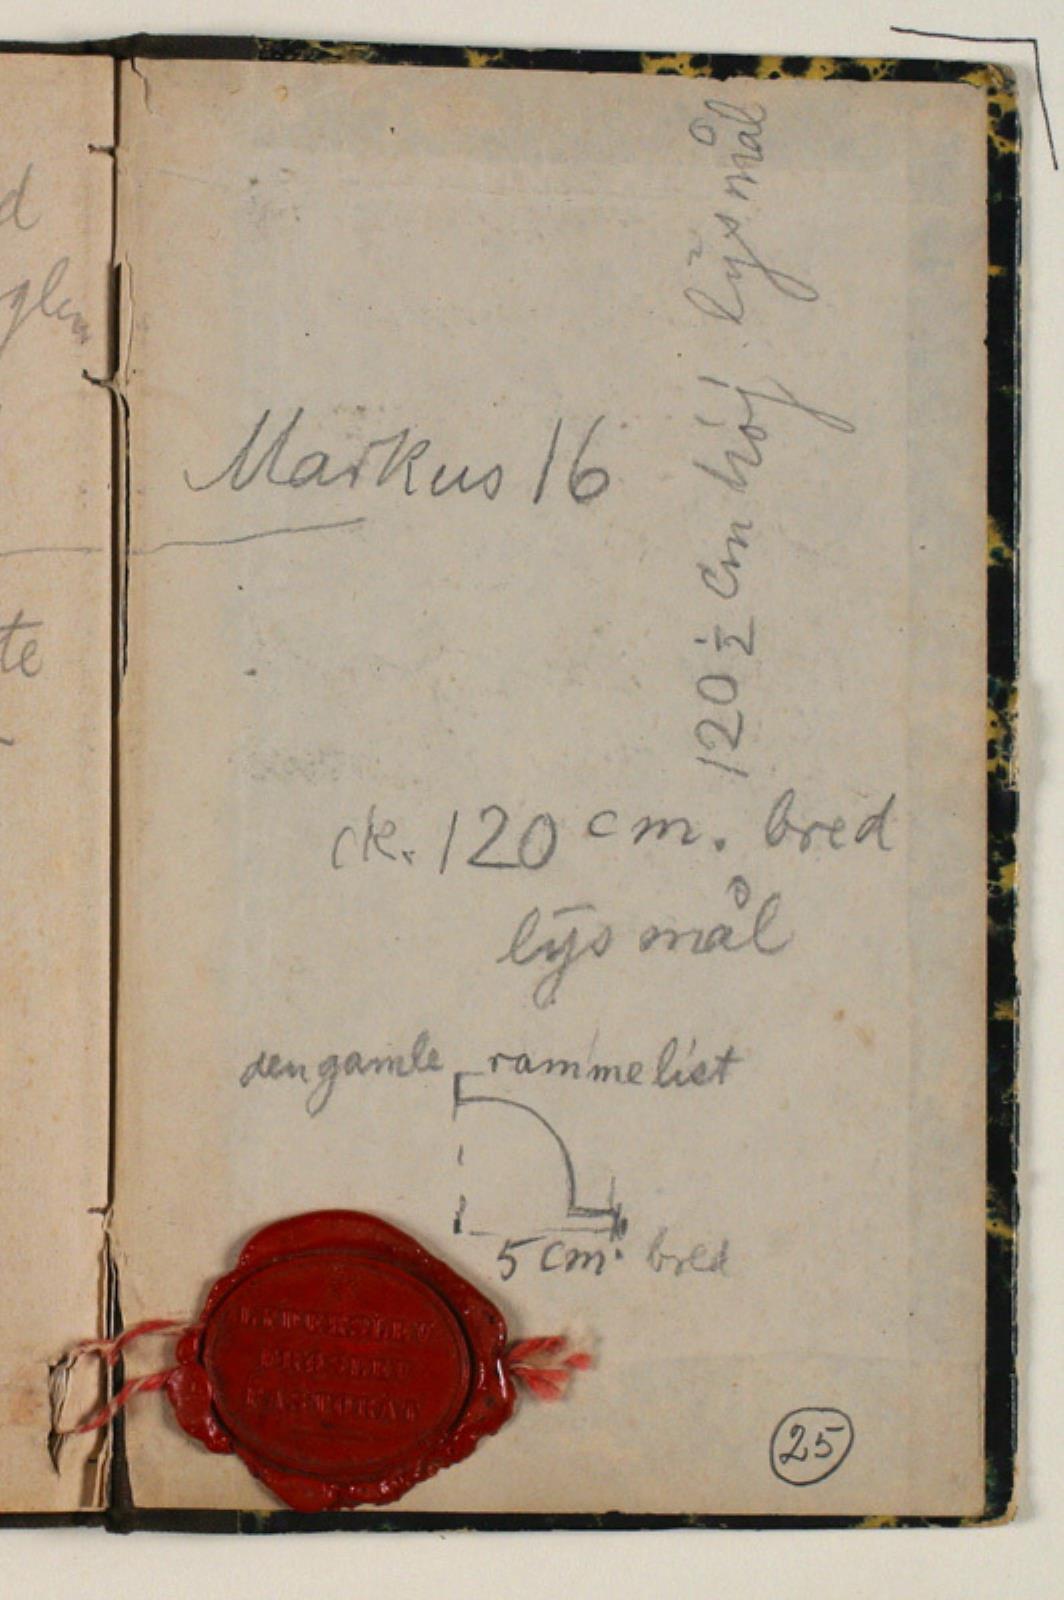 d
te
Markus 16
120 ½ cm höj lÿsmål
ck. 120 cm. bred
lÿsmål
den gamle rammelist
5 cm. bred
PASTORAT
25